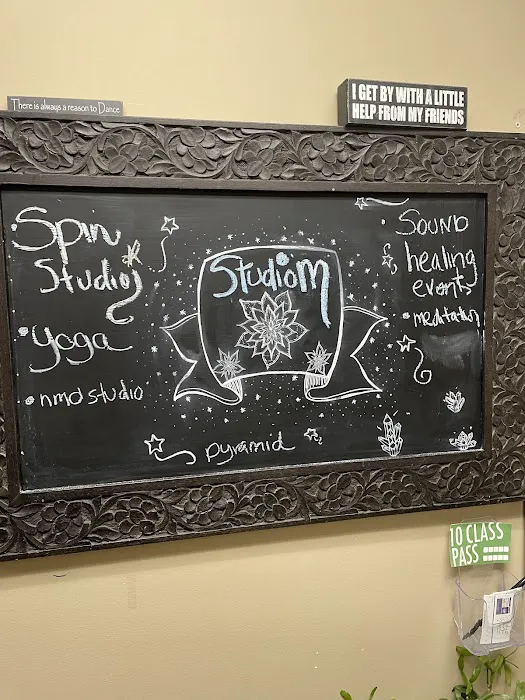 There is always a reason to Dance
I GET BY WITH A LITTLE
HELP FROM MY FRIENDS
Spin
Studio
yoga
nmd studio
StudioM
pyramid
Sound
healing
events
meditation
10 CLASS
PASS